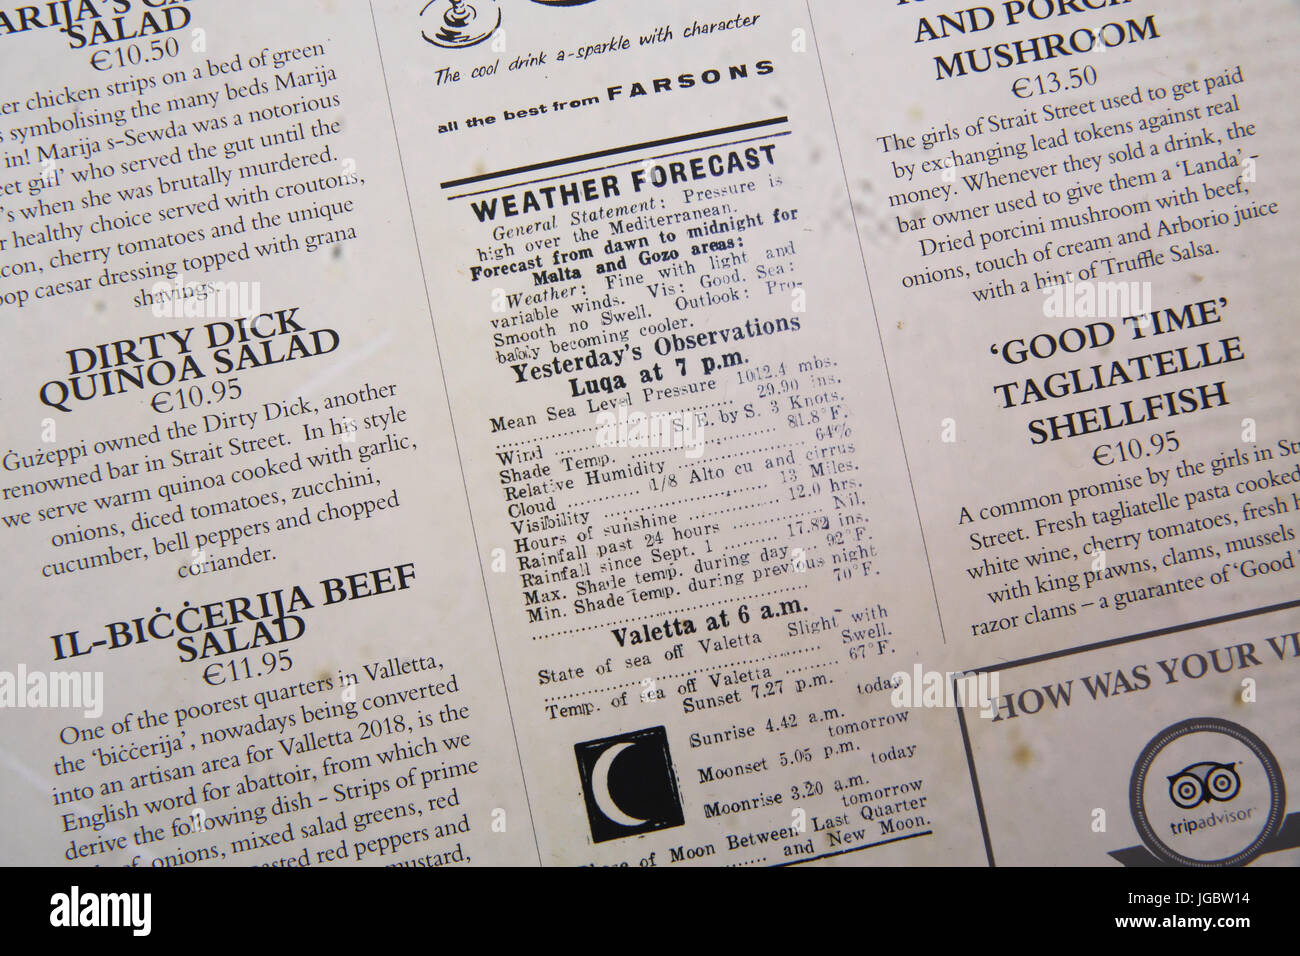 SALAD
€10.50
chicken strips on a bed of green
symbolising the many beds Marija
in! Marija s-Sewda was a notorious
girl' who served the gut until the
when she was brutally murdered.
healthy choice served with croutons,
cherry tomatoes and the unique
caesar dressing topped with grana
shavings.
DIRTY DICK
QUINOA SALAD
€10.95
Ġużeppi owned the Dirty Dick, another
renowned bar in Strait Street. In his style
we serve warm quinoa cooked with garlic,
onions, diced tomatoes, zucchini,
cucumber, bell peppers and chopped
coriander.
IL-BIĊĊERIJA BEEF
SALAD
€11.95
One of the poorest quarters in Valletta,
the 'biċċerija', nowadays being converted
into an artisan area for Valletta 2018, is the
English word for abattoir, from which we
derive the following dish - Strips of prime
onions, mixed salad greens, red
red peppers and
mustard,
The cool drink a-sparkle with character
all the best from FARSONS
WEATHER FORECAST
General Statement: Pressure is
high over the Mediterranean.
Forecast from dawn to midnight for
Malta and Gozo areas:
Weather: Fine with light and
variable winds. Vis: Good. Sea:
Smooth no Swell. Outlook: Pro-
bably becoming cooler.
Yesterday's Observations
Luqa at 7 p.m.
Mean Sea Level Pressure 1012.4 mbs.
........................ 29.90 ins.
Wind ............ S. E. by S. 3 Knots.
Shade Temp. ................ 81.8°F.
Relative Humidity ............ 64%
Cloud ........ 1/8 Alto cu and cirrus
Visibility ................ 13 Miles.
Hours of sunshine ........ 12.0 hrs.
Rainfall past 24 hours ........ Nil.
Rainfall since Sept. 1 .... 17.82 ins.
Max. Shade temp. during day ... 92°F.
Min. Shade temp. during previous night
........................ 70°F.
Valetta at 6 a.m.
State of sea off Valetta Slight with
........................ Swell.
Temp. of sea off Valetta ...... 67°F.
Sunset 7.27 p.m. today
Sunrise 4.42 a.m.
tomorrow
Moonset 5.05 p.m.
today
Moonrise 3.20 a.m.
tomorrow
of Moon Between Last Quarter
........ and New Moon.
AND PORCINI
MUSHROOM
€13.50
The girls of Strait Street used to get paid
by exchanging lead tokens against real
money. Whenever they sold a drink, the
bar owner used to give them a 'Landa' -
Dried porcini mushroom with beef,
onions, touch of cream and Arborio juice
with a hint of Truffle Salsa.
'GOOD TIME'
TAGLIATELLE
SHELLFISH
€10.95
A common promise by the girls in
Street. Fresh tagliatelle pasta cooked
white wine, cherry tomatoes, fresh
with king prawns, clams, mussels
razor clams – a guarantee of 'Good
HOW WAS YOUR
tripadvisor
alamy
Image ID: JGBW14
www.alamy.com